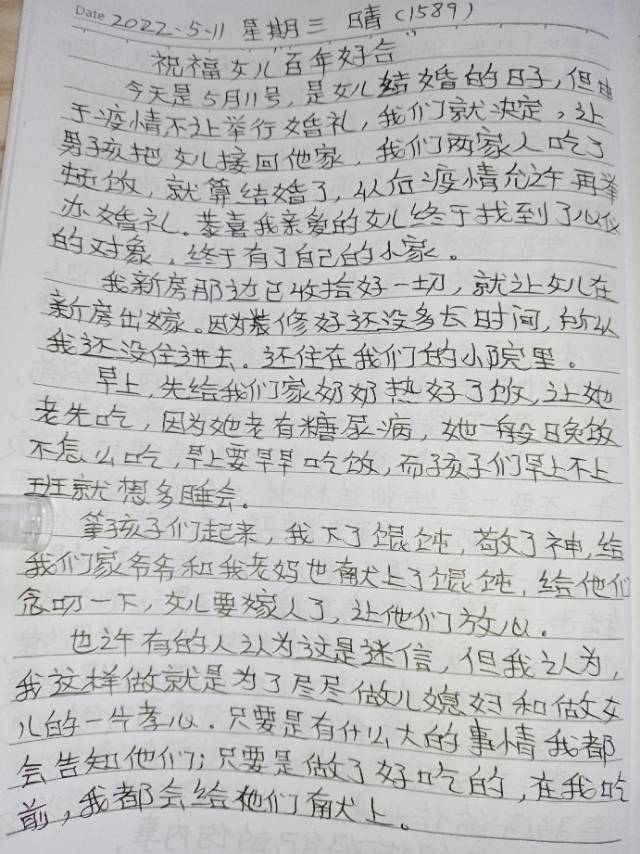 Date 2022.5.11 星期三 晴(1589)
祝福女儿"百年好合"
今天是5月11号,是女儿结婚的日子,但由
于疫情不让举行婚礼,我们就决定,让
男孩把女儿接回他家,我们两家人吃了
饭,就算结婚了,以后疫情允许再举
办婚礼。恭喜我亲爱的女儿终于找到了心仪
的对象,终于有了自己的小家。
我新房那边已收拾好一切,就让女儿在
新房出嫁。因为装修好还没多长时间,所以
我还没住进去。还住在我们的小院里。
早上,先给我们家奶奶热好了饭,让她
老先吃,因为她老有糖尿病,她一般晚饭
不怎么吃,早上要早早吃饭,而孩子们早上不上
班就想多睡会。
等孩子们起来,我下了馄饨,敬了神,给
我们家爷爷和我老妈也献上了馄饨,给他们
念叨一下,女儿要嫁人了,让他们放心。
也许有的人认为这是迷信,但我认为,
我这样做就是为了尽尽做儿媳妇和做女
儿的一片孝心。只要是有什么大的事情我都
会告知他们;只要是做了好吃的,在我吃
前,我都会给他们献上。